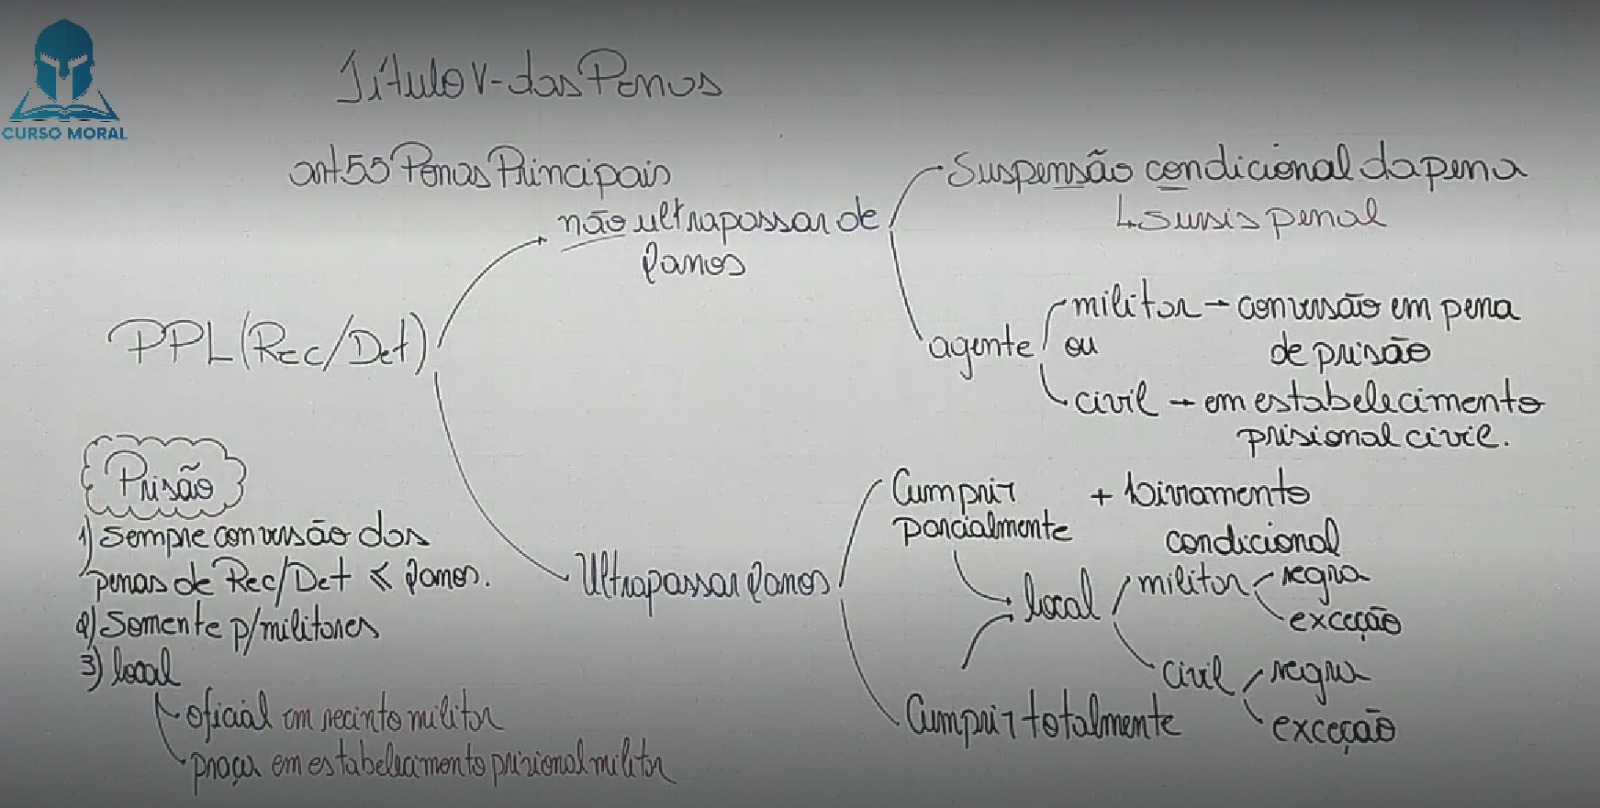 CURSO MORAL
Título V - das Penas
art 55 Penas Principais
PPL (Rec/Det)
não ultrapassar de
2 anos
Suspensão condicional da pena
↳ Sursis penal
agente
militar → conversão em pena
de prisão
ou
civil → em estabelecimento
prisional civil.
Ultrapassar 2 anos
Cumprir
parcialmente
+ Livramento
condicional
local
militar
regra
exceção
civil
regra
exceção
Cumprir totalmente
Prisão
1) Sempre conversão das
penas de Rec/Det ≤ 2 anos.
2) Somente p/ militares
3) local
oficial em recinto militar
praça em estabelecimento prisional militar